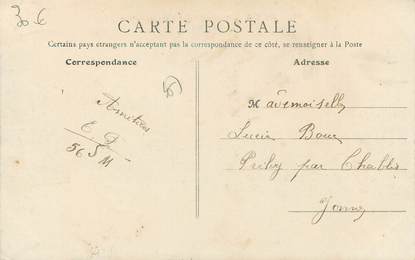 30 €
CARTE POSTALE
Certains pays étrangers n'acceptant pas la correspondance de ce côté, se renseigner à la Poste
Correspondance
Adresse
Amitiés
Mademoiselle
Lucie
Préhy par Chablis
Yonne